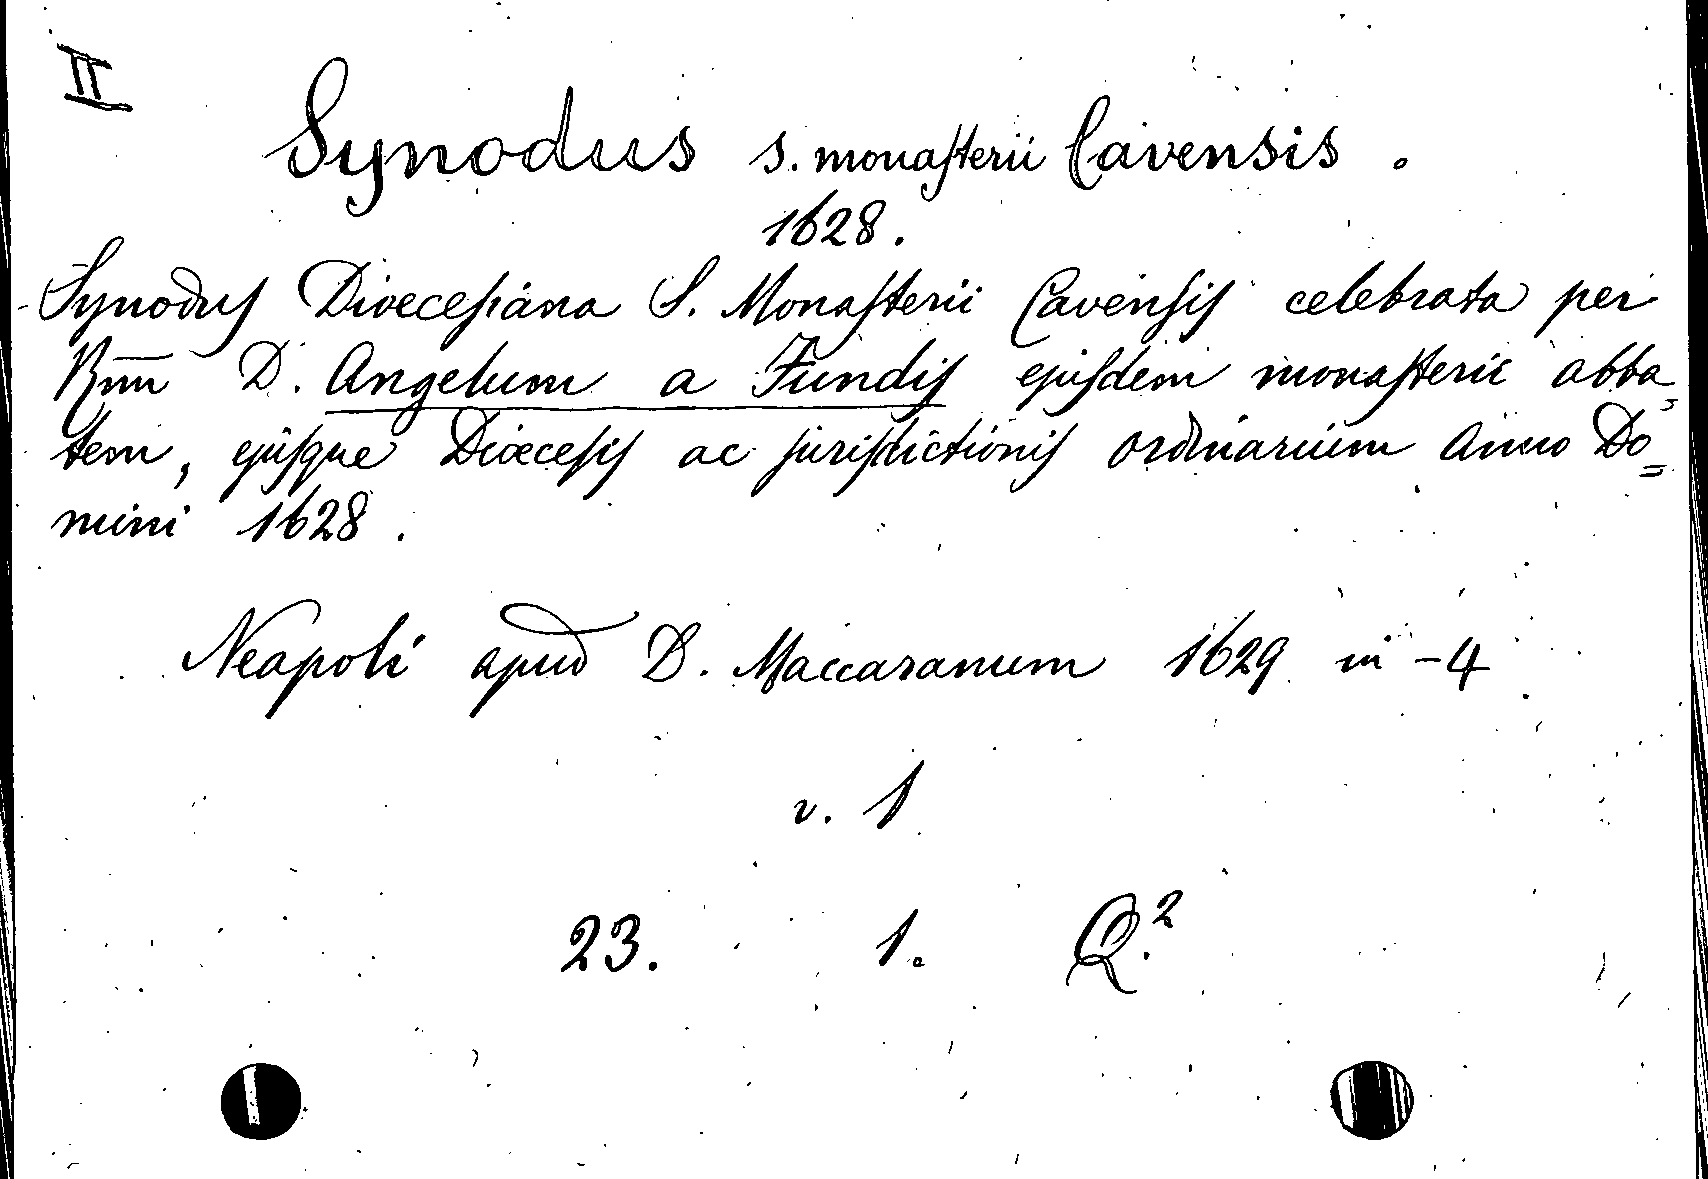 II
Synodus s. monasterii Cavensis.
1628.
Synodus Dioecesiana S. Monasterii Cavensis celebrata per
Rmm D. Angelum a Fundis ejusdem monasterii abba=
tem, ejusque Dioecesis ac jurisdictionis ordinarium Anno Do=
mini 1628.
Neapoli apud D. Maccaranum 1629 in-4
v. 1
23. 1. Q.²